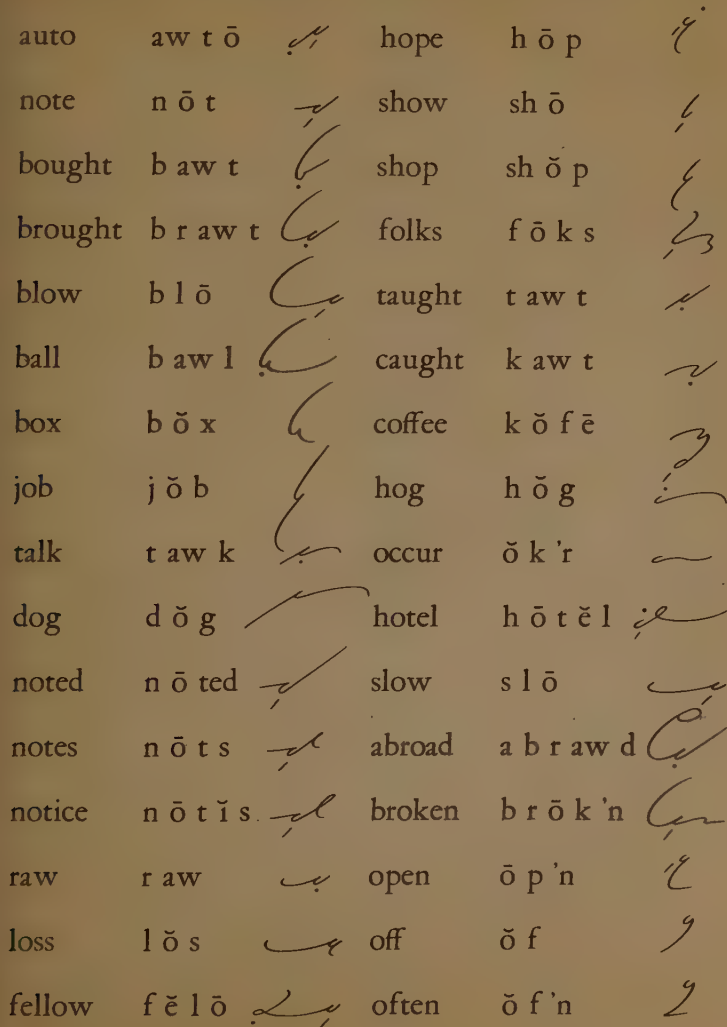 auto aw t ō hope h ō p
note n ō t show sh ō
bought b aw t shop sh ŏ p
brought b r aw t folks f ō k s
blow b l ō taught t aw t
ball b aw l caught k aw t
box b ŏ x coffee k ŏ f ē
job j ŏ b hog h ŏ g
talk t aw k occur ŏ k 'r
dog d ŏ g hotel h ō t ĕ l
noted n ō ted slow s l ō
notes n ō t s abroad a b r aw d
notice n ō t ĭ s broken b r ō k 'n
raw r aw open ō p 'n
loss l ŏ s off ŏ f
fellow f ĕ l ō often ŏ f 'n